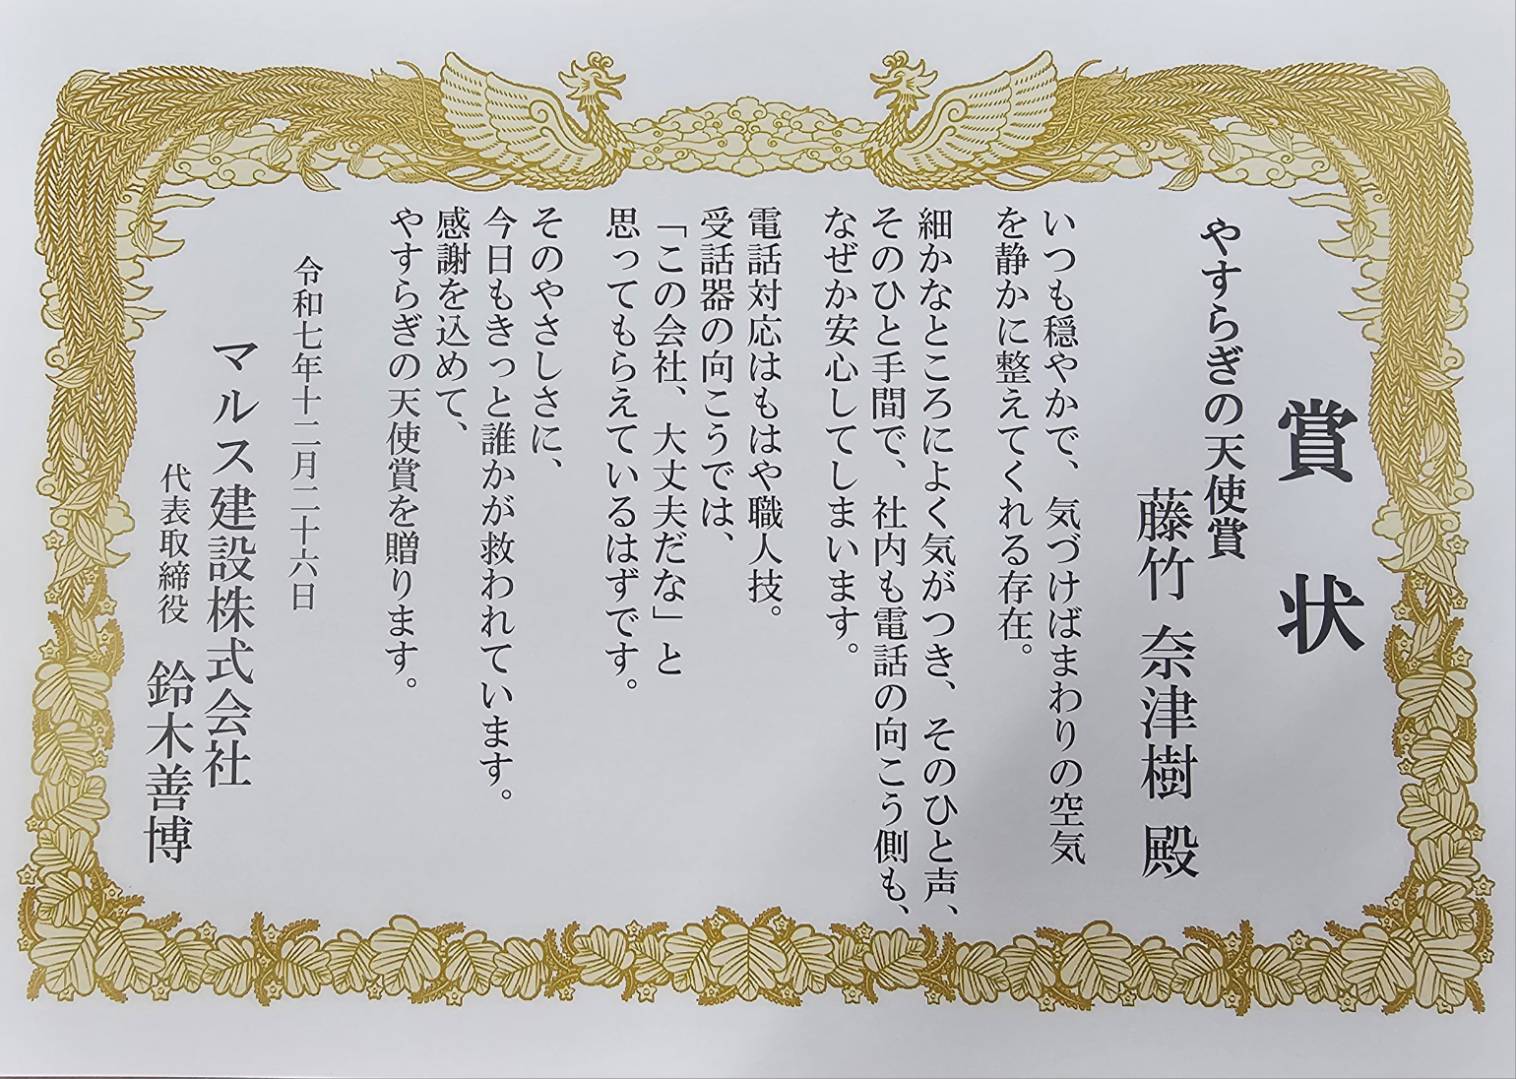 賞状
やすらぎの天使賞
藤竹 奈津樹 殿
いつも穏やかで、気づけばまわりの空気
を静かに整えてくれる存在。
細かなところによく気がつき、そのひと声、
そのひと手間で、社内も電話の向こう側も、
なぜか安心してしまいます。
電話対応はもはや職人技。
受話器の向こうでは、
「この会社、大丈夫だな」と
思ってもらえているはずです。
そのやさしさに、
今日もきっと誰かが救われています。
感謝を込めて、
やすらぎの天使賞を贈ります。
令和七年十二月二十六日
マルス建設株式会社
代表取締役 鈴木善博